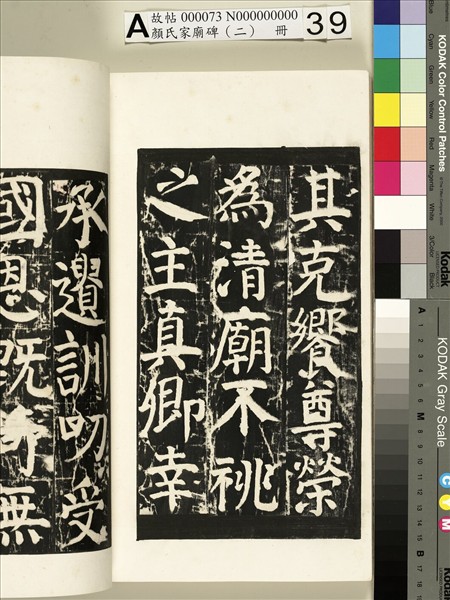 A
故帖 000073 N000000000
顏氏家廟碑（二） 冊
39
其克饗尊榮
為清廟不祧
之主真卿幸
承遺訓叨受
國恩既無
KODAK Color Control Patches
Blue
Cyan
Green
Yellow
Red
Magenta
White
3/Color
Black
Kodak
KODAK Gray Scale
A 1 2 3 4 5 6 M 8 9 10 11 12 13 14 15 B 17 18
C
Y
M
Kodak